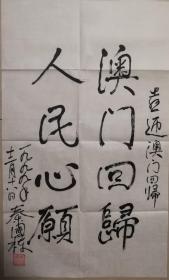 喜迎澳门回归
澳门回歸
人民心願
一九九九年
十二月十八日 秦國棟